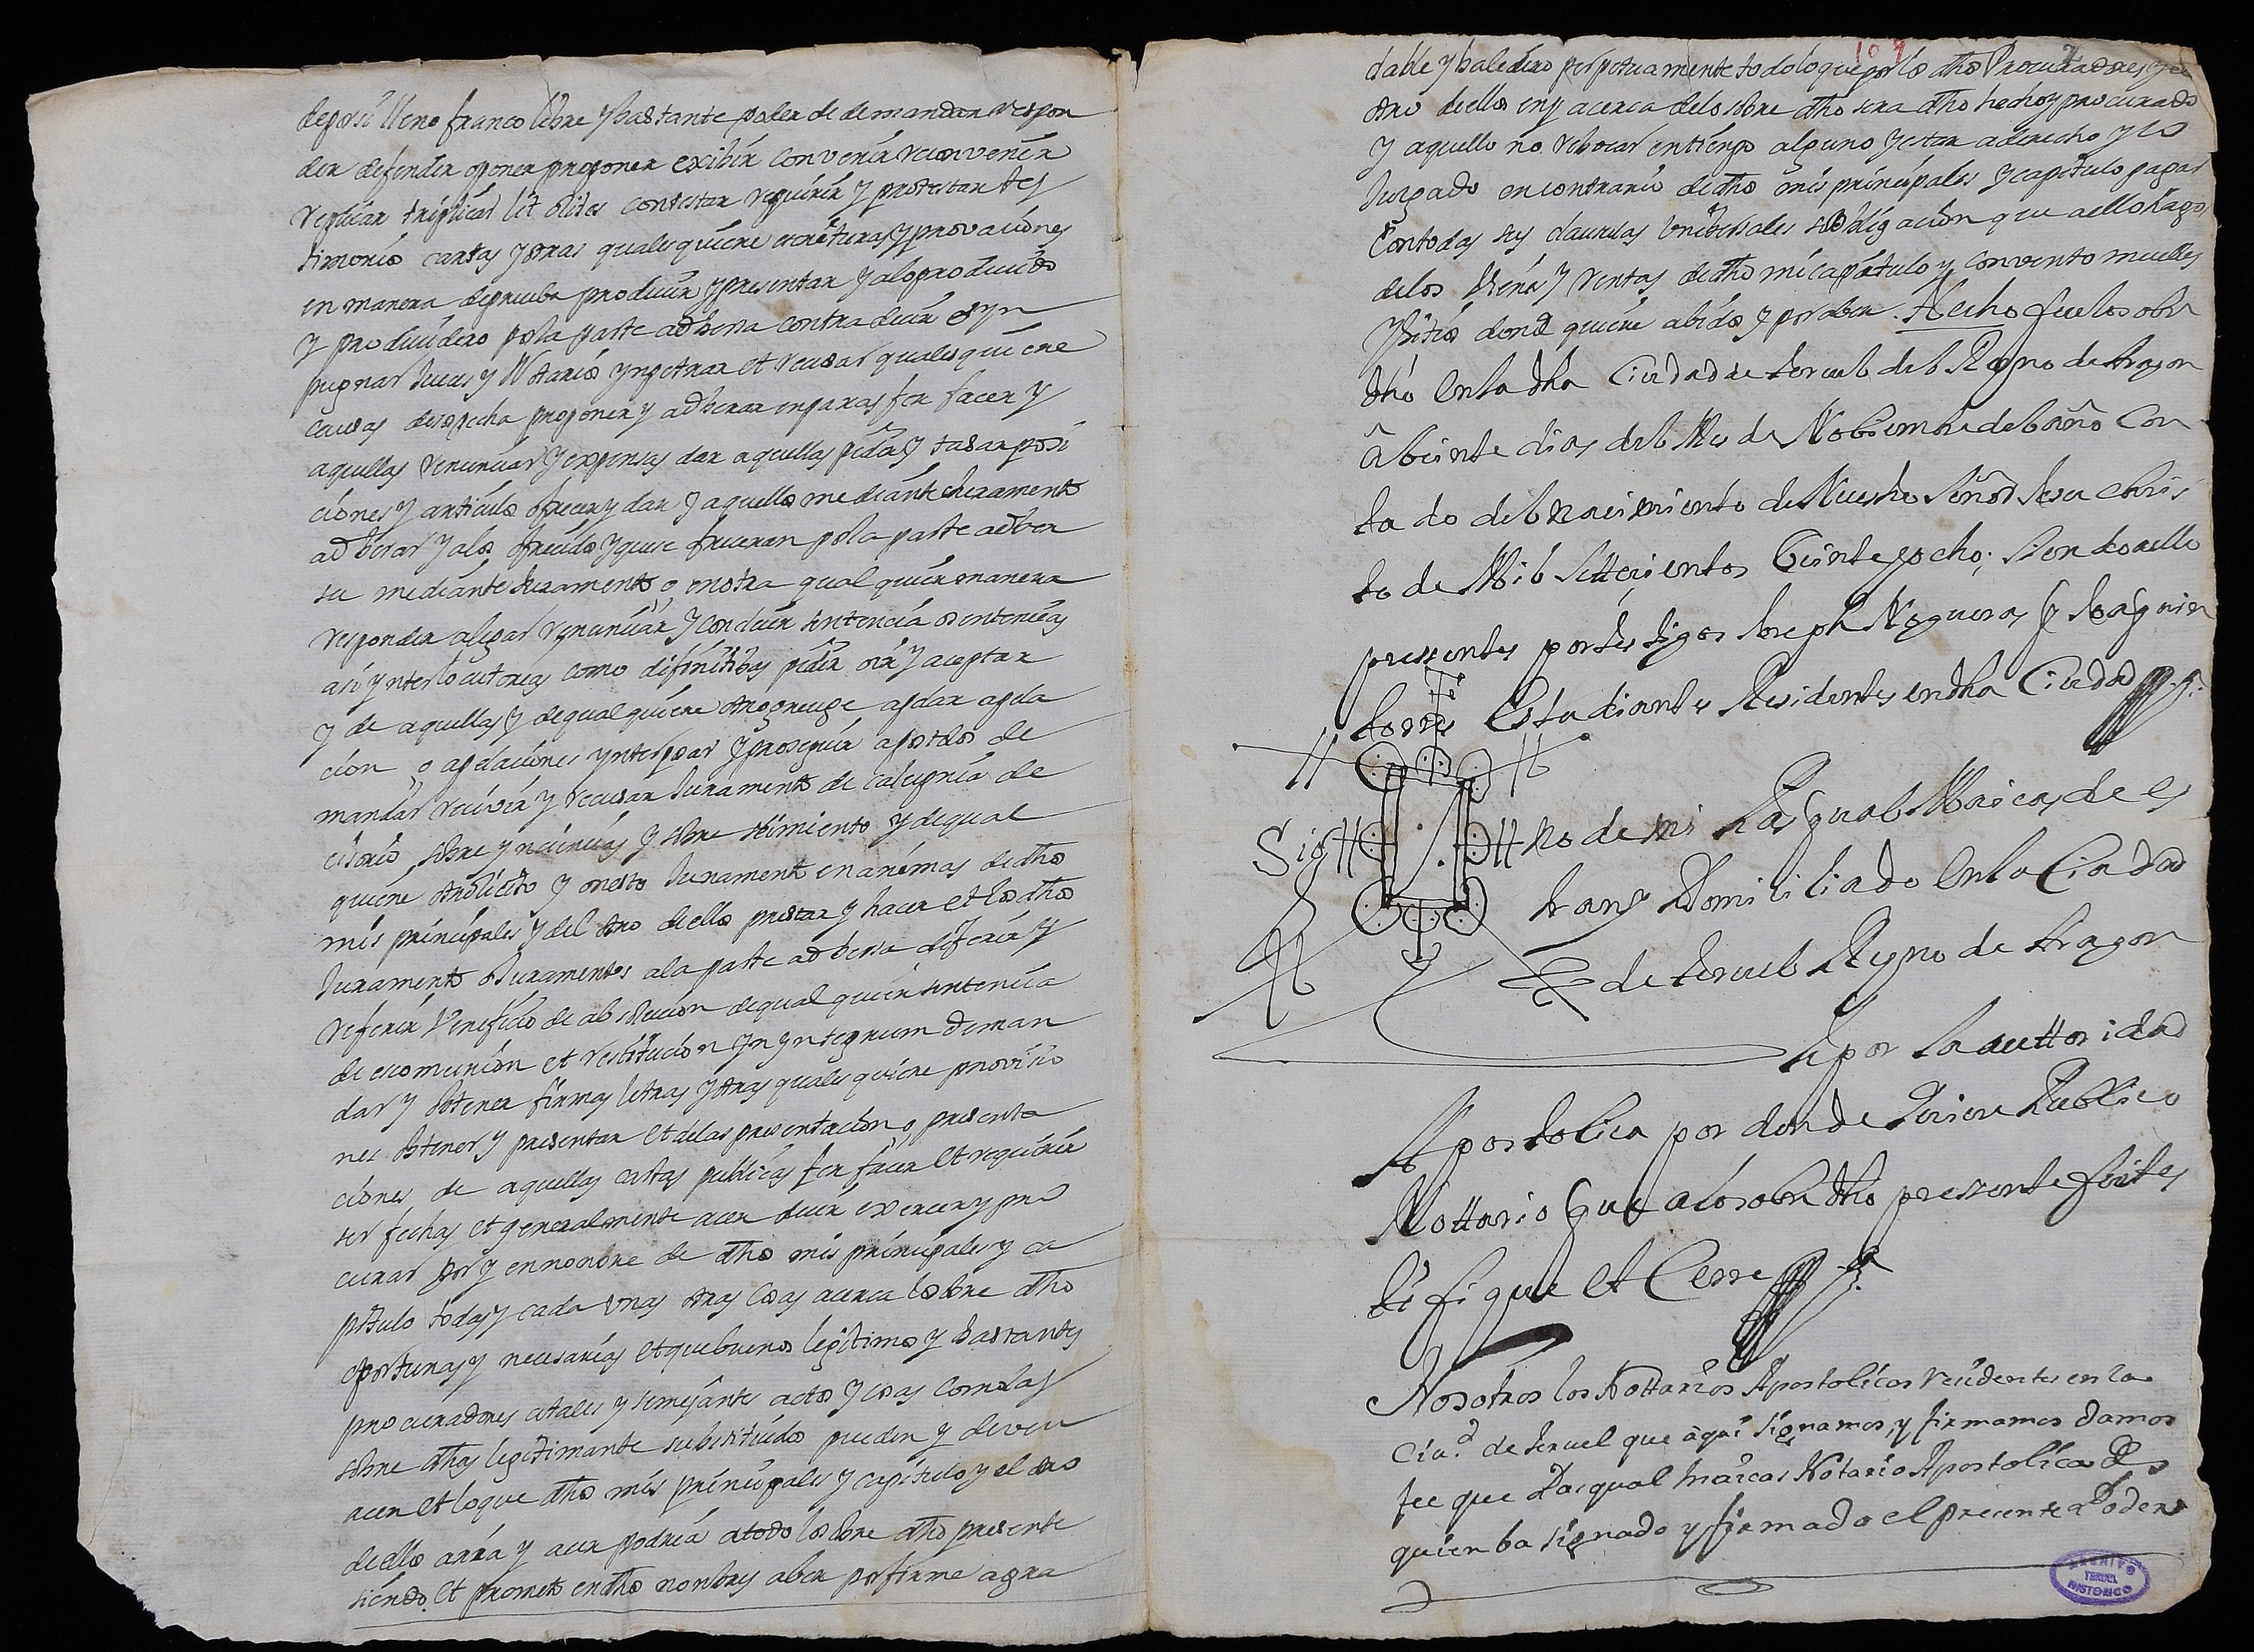 deposi lleno franco libre y bastante poder de demandar respon
der defender oponer proponer exibir convenir reconvenir
replicar triplicar lit o lites contestar requirir y protestar tes
timonios cartas y otras quales quiere escrituras y provaciones
en manera de prueba producir y presentar y alo producido
y producidero por la parte adbersa contradecir ..
pugnar Jueces y Notarios ynpetrar et recusar quales quiere
causas de sospecha proponer y adberar en paxas fer facer y
aquellas renunciar y expensas dar aquellas pidir y tasar posi
ciones y articulos ofrecer y dar y aquellos mediante Juramento
adberar y alos ofrecidos y que se frecieran por la parte adber
sa mediante Juramento o, en otra qual quier manera
responder alegar renunciar y concluir sentencia o sentencias
asi ynterlocutorias como difinitibas pidir oir y aceptar
y de aquellas y de qual quiere otro greuge apelar apela
cion, o apelaciones ynterposar y proseguir apostolos de
mandar recivir y recusar Juramento de calupnia de
cisorio sobre yncidencias y sobre seimiento y de qual
quiere otro licito y onesto Juramento en animas de dhos
mis principales y del otro de ellos prestar y hacer et los dhos
Juramento o Juramentos a la parte adbersa diferir y
referir Veneficio de absolucion de qual quier sentencia
de escomunion et restitucion yn yntegrum deman
dar y obtener firmas letras y otras quales quiere provisio
nes obtener y presentar et de las presentacion o, presenta
ciones de aquellas cartas publicas fer facer et requirir
ser fechas et generalmente acer decir exercer y pro
curar por y en nombre de dhos mis principales y ca
pitulo todas y cada unas otras cosas acerca lo sobre dho
oportunas y necesarias et que buenos legitimos y bastantes
procuradores a tales y semejantes actos y cosas como las
sobre dhas legitimante substituidos pueden y deven
acer et lo que dhos mis principales y capitulo y el otro
de ellos aria y acer podria a todo lo sobre dho presente
siendo et prometo en dhos nombres aber por firme agra
107
dable y baledero perpetuamente todo lo que por los dhos Procuradores y el
otro de ellos en y acerca de lo sobre dho sera dho hecho y procurado
y aquello no rebocar en tiempo alguno y estar a derecho y lo
Juzgado en contrario de dhos mis principales y capitulo pagar
con todas sus clausulas unibersales so obligacion que a ello hago
de los Bienes y rentas de dho mi capitulo y convento muebles
y sitios donde quiere abidos y por aber. Hecho fue lo sobre
dho en la dha Ciudad de Teruel del Reyno de Aragon
a beinte dias del Mes de Nobiembre del año Con
tado del nacimiento de Nuestro Señor Jesu Chris
to de Mil Settecientos beinte y ocho; siendo a ello
presentes por testigos Joseph Nogueras y Joaquin
torres Estudiantes Residentes en dha Ciudad
Sig no de mi Pasqual Maicas de es
trany Domiciliado en la Ciudad
de Teruel Reyno de Aragon
y por la auttoridad
Apostolica por donde quiere Publico
Nottario que a lo sobre dho presente fui tes
tifique et Cerre
Nosotros los Nottarios Apostolicos residentes en la
Ciu.d de Teruel que aqui signamos, y firmamos damos
fee que Pasqual Maicas Notario Apostolico es
quien ba signado y firmado el precente Poder
ARCHIVO
TERUEL
HISTORICO